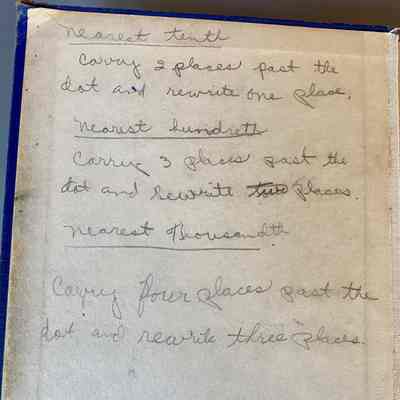 nearest tenth
Carry 2 places past the
dot and rewrite one place.
nearest hundreth
Carry 3 places past the
dot and rewrite two places.
nearest thousandth
Carry four places past the
dot and rewrite three places.